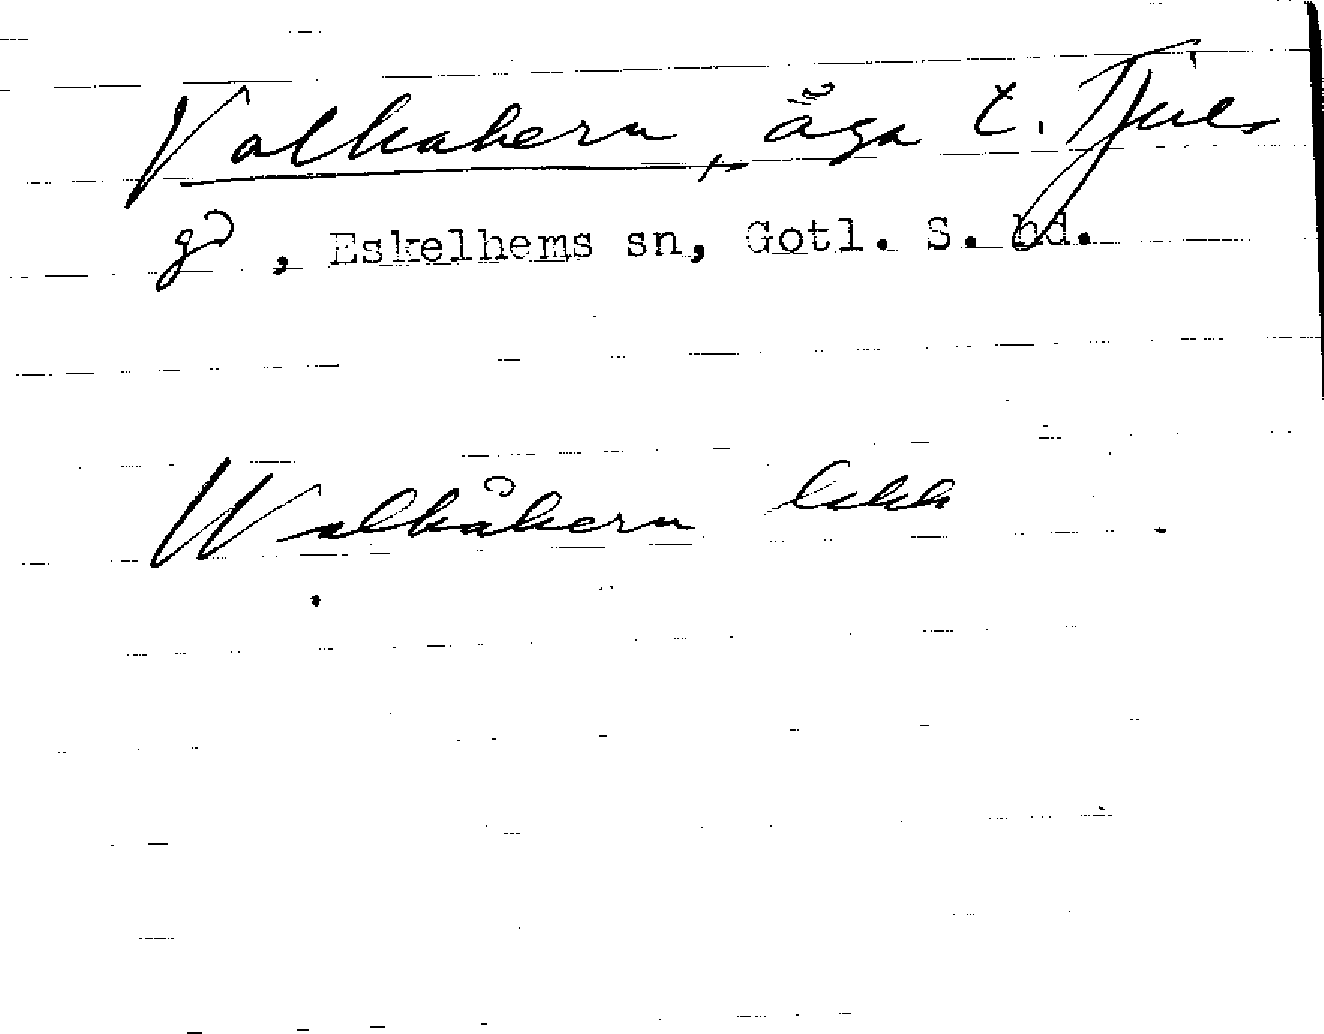 Valkakern, äga t. Tjuls
gd, Eskelhems sn, Gotl. S. hd.
Walkåkern